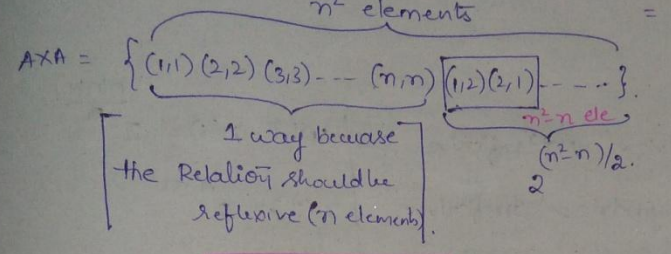 n² elements =
A×A = { (1,1) (2,2) (3,3) - - - - (n,n) (1,2) (2,1) - - - - - }.
n²-n ele
1 way because
the Relation should be
reflexive (n elements).
2^(n²-n)/2.